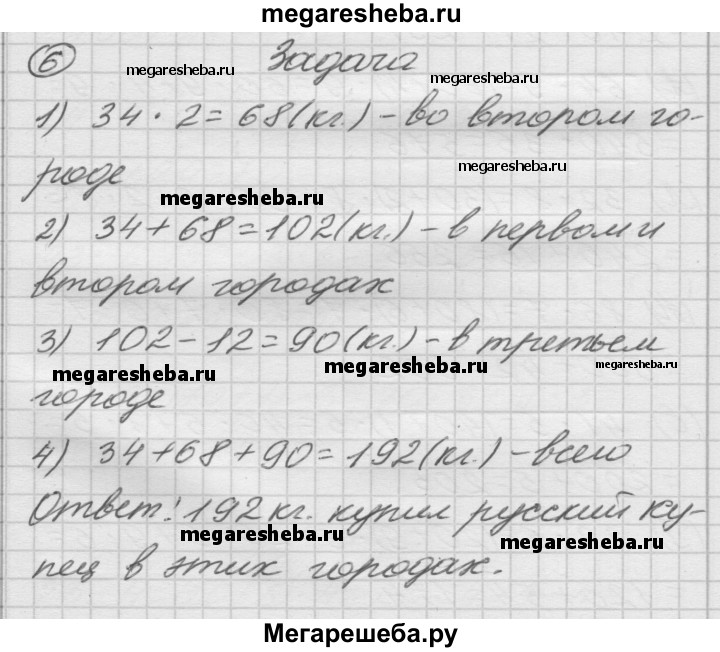 megaresheba.ru
6 Задача
megaresheba.ru megaresheba.ru
1) 34 · 2 = 68 (кг.) - во втором го-
megaresheba.ru
роде
megaresheba.ru
2) 34 + 68 = 102 (кг.) - в первом и
втором городах
3) 102 - 12 = 90 (кг.) - в третьем
megaresheba.ru megaresheba.ru megaresheba.ru
городе
4) 34 + 68 + 90 = 192 (кг.) - всего
Ответ: 192 кг. купил русский ку-
megaresheba.ru megaresheba.ru
пец в этих городах.
Мегарешеба.ру